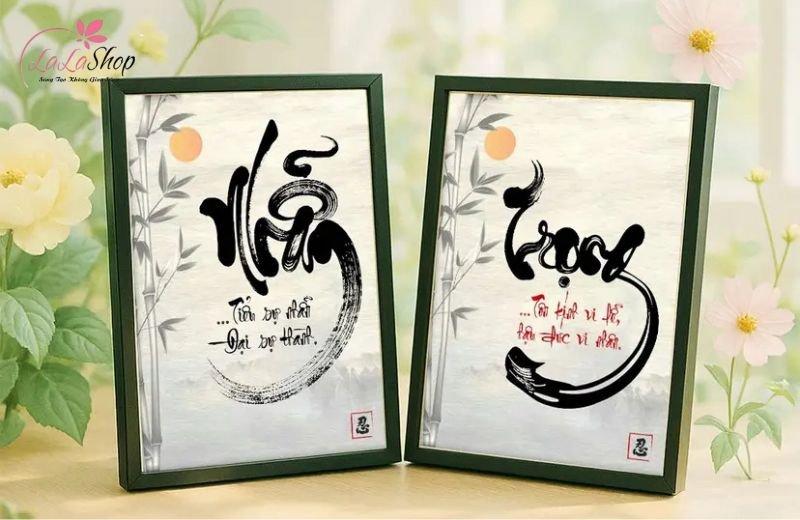 LaLaShop
Sáng Tạo Không Gian
Nhẫn
...Tiểu sự nhẫn
Đại sự thành.
忍
Trọng
...Tôn kính vi lễ,
hậu đức vi nhân.
忍